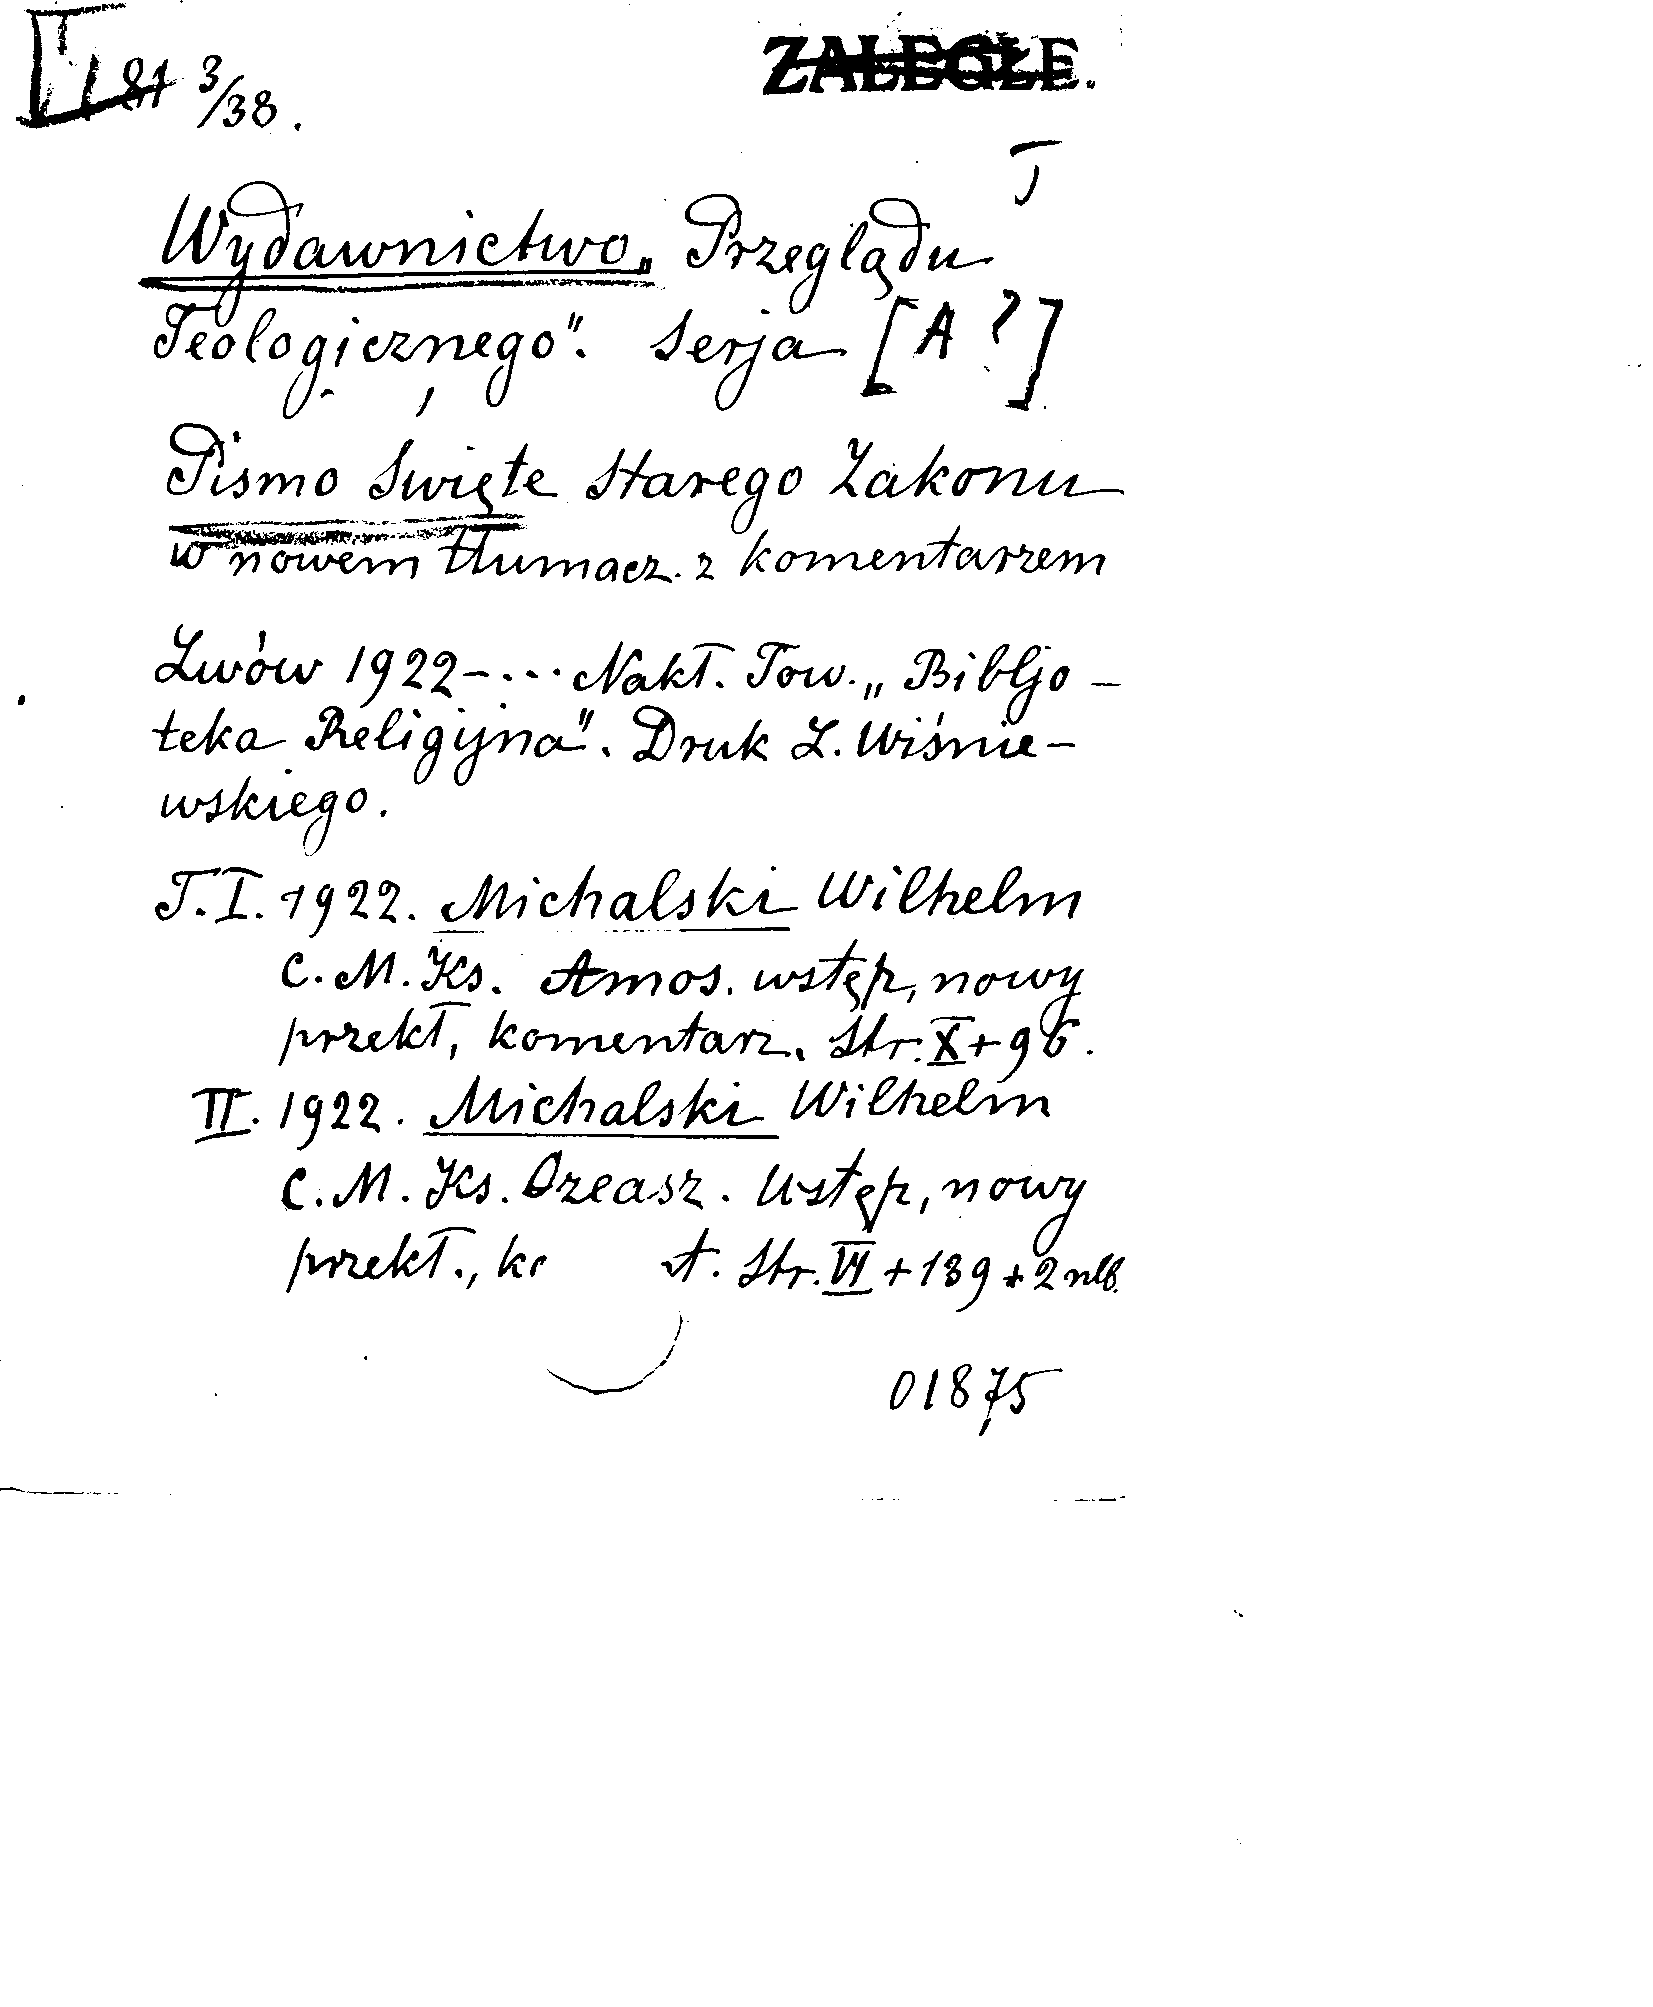 81 3/38.
ZALEGŁE.
T
Wydawnictwo „Przeglądu
Teologicznego". Serja [A ?]
Pismo Święte Starego Zakonu
w nowem tłumacz. z komentarzem
Lwów 1922-... Nakł. Tow. „Bibljo-
teka Religijna". Druk L. Wiśnie-
wskiego.
T. I. 1922. Michalski Wilhelm
C. M. Ks. Amos. wstęp, nowy
przekł, komentarz. Str. X + 96.
II. 1922. Michalski Wilhelm
C. M. Ks. Ozeasz. Wstęp, nowy
przekł., t. Str. VI + 139 + 2 nlb.
01875